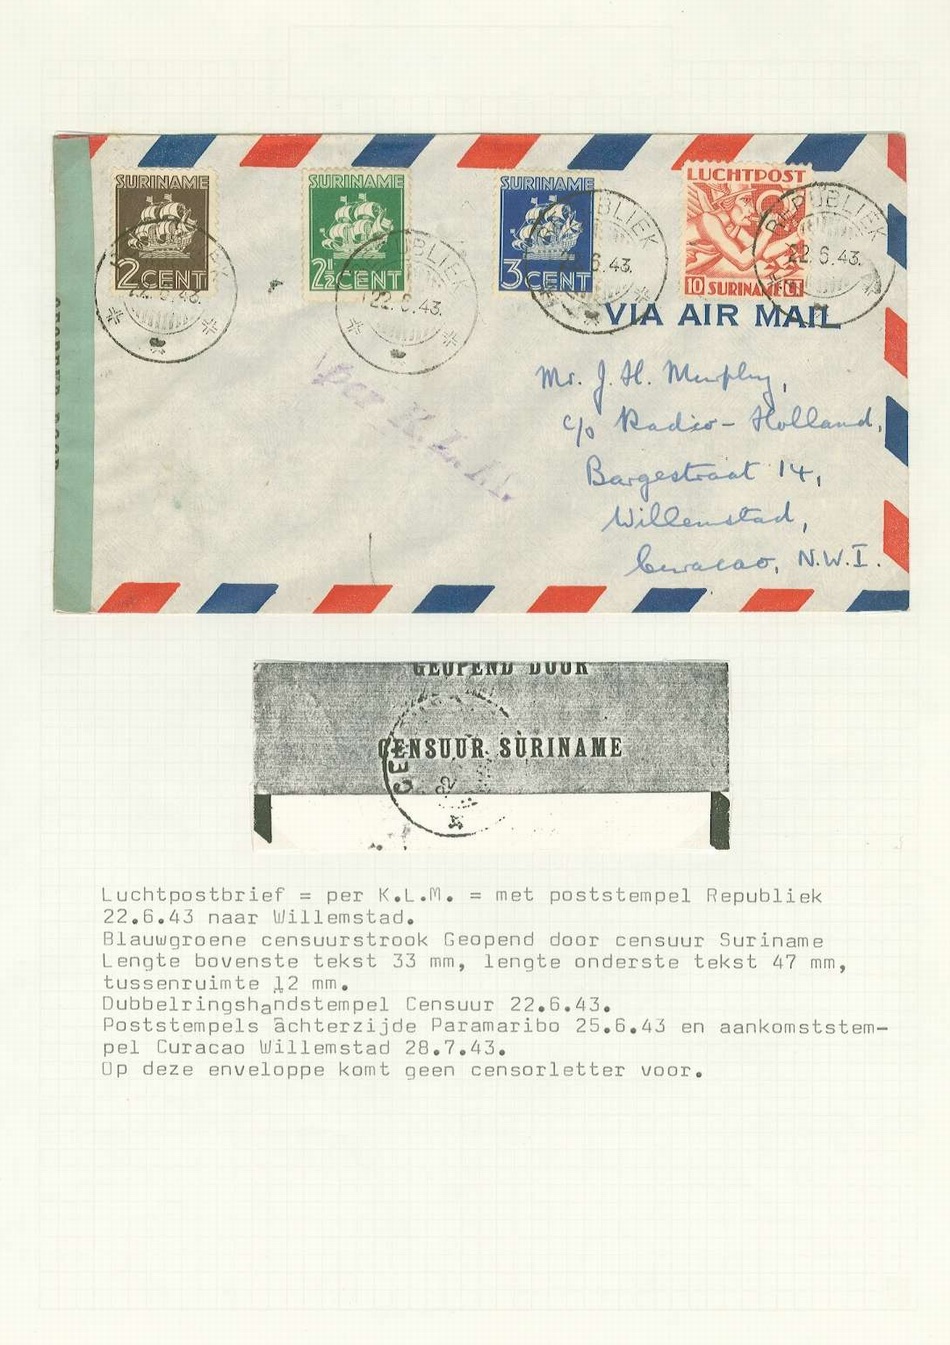 SURINAME
2 CENT
SURINAME
2½ CENT
SURINAME
3 CENT
LUCHTPOST
10 SURINAME CT
REPUBLIEK
22.6.43.
REPUBLIEK
22.6.43.
REPUBLIEK
22.6.43.
REPUBLIEK
22.6.43.
VIA AIR MAIL
per K.L.M.
Mr. J. H. Murphy,
c/o Radio-Holland,
Bargestraat 14,
Willemstad,
Curacao, N.W.I.
GEOPEND DOOR
CENSUUR SURINAME
Luchtpostbrief = per K.L.M. = met poststempel Republiek
22.6.43 naar Willemstad.
Blauwgroene censuurstrook Geopend door censuur Suriname
Lengte bovenste tekst 33 mm, lengte onderste tekst 47 mm,
tussenruimte 12 mm.
Dubbelringshandstempel Censuur 22.6.43.
Poststempels achterzijde Paramaribo 25.6.43 en aankomststem-
pel Curacao Willemstad 28.7.43.
Op deze enveloppe komt geen censorletter voor.